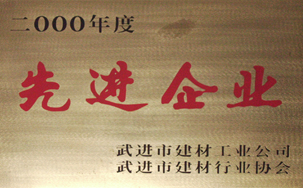 二000年度
先进企业
武进市建材工业公司
武进市建材行业协会